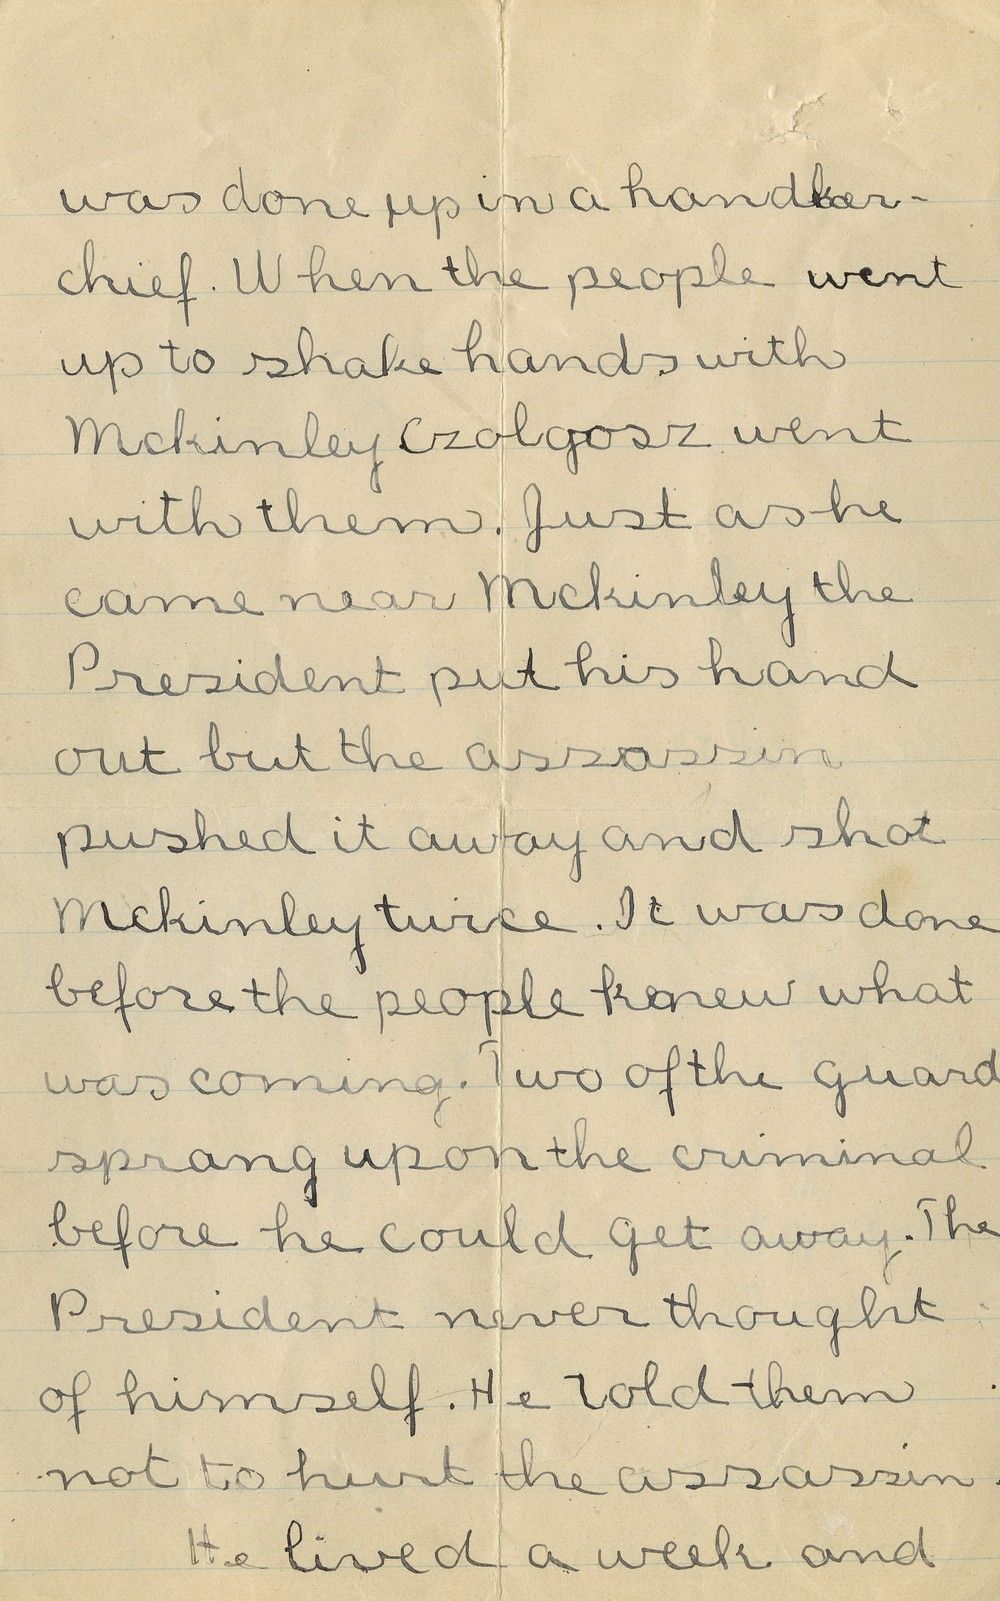 was done up in a handker-
chief. When the people went
up to shake hands with
Mckinley Czolgosz went
with them. Just as he
came near Mckinley the
President put his hand
out but the assassin
pushed it away and shot
Mckinley twice. It was done
before the people knew what
was coming. Two of the guard
sprang upon the criminal
before he could get away. The
President never thought
of himself. He told them
not to hurt the assassin.
He lived a week and